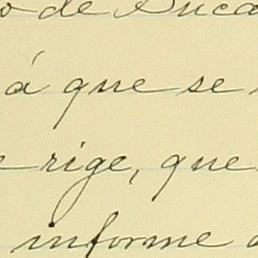 o de
á que se
rige, que
informe